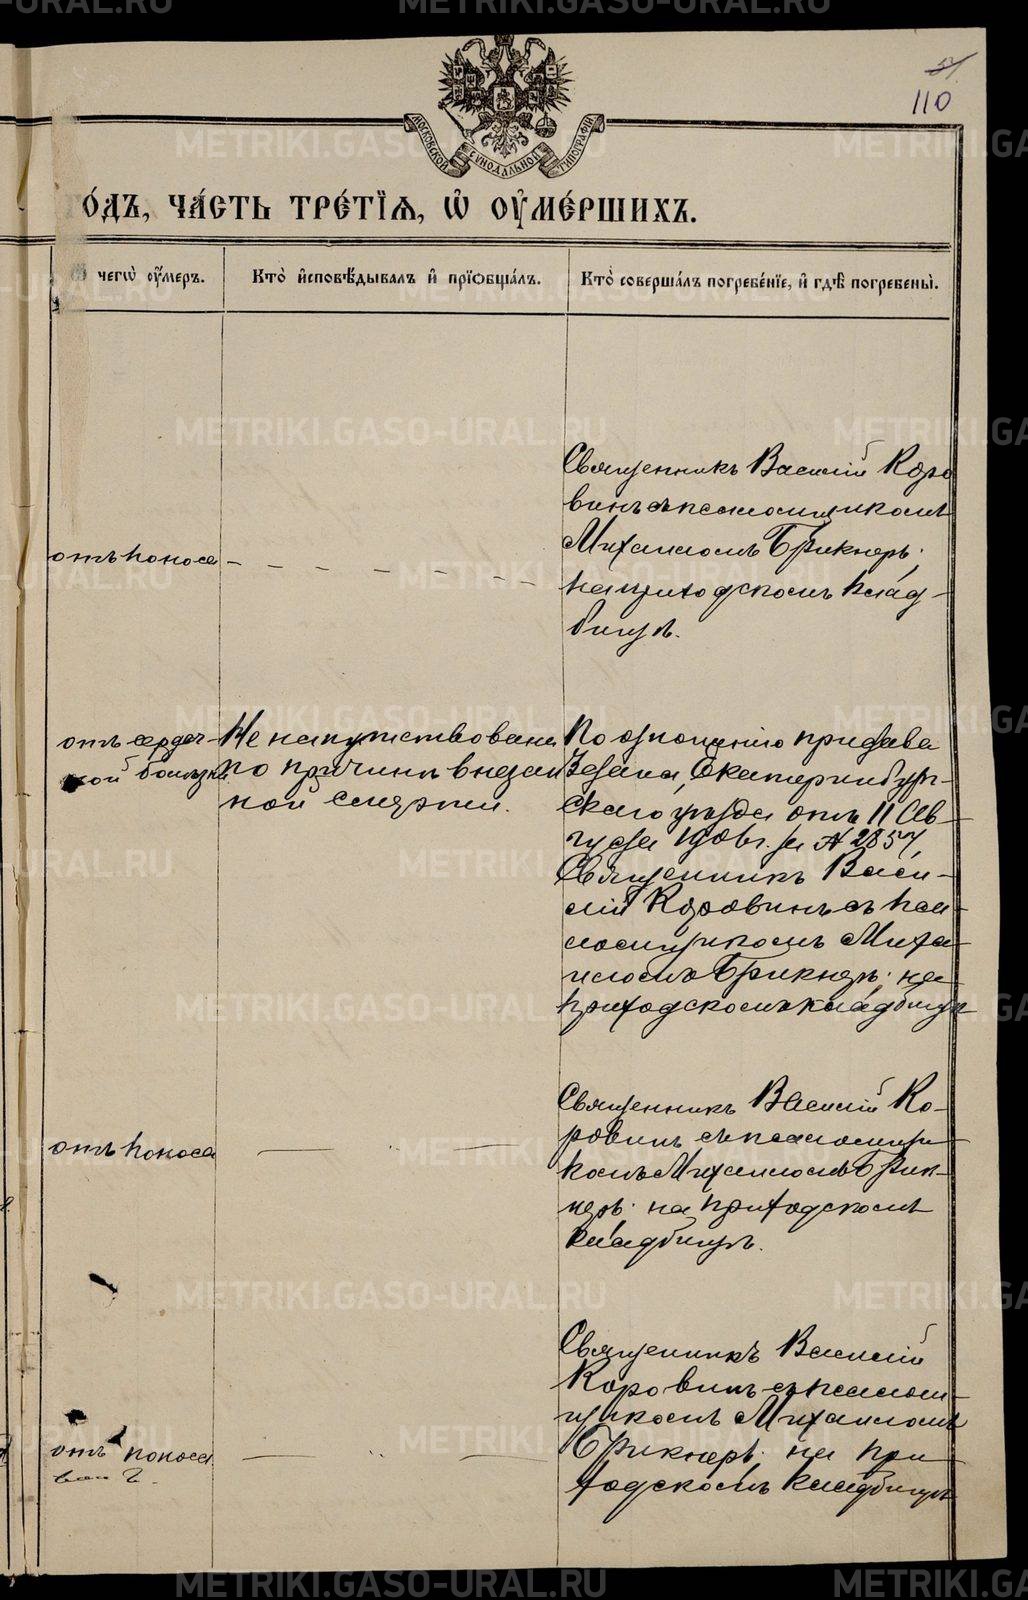 110
МОСКОВСКОЙ СѴНОДАЛЬНОЙ ТИПОГРАФИИ
о́дъ, ча́сть тре́тїѧ, ѡ҆ оу҆ме́ршихъ.
чегѡ̀ оу҆́меръ.
Кто̀ и҆сповѣ́дывалъ и҆ прїѻбща́лъ.
Кто̀ соверша́лъ погребе́нїе, и҆ гдѣ̀ погребены̀.
Священникъ Василій Коро
винъ съ псаломщикомъ
Михаиломъ Брикнеръ.
на приходскомъ клад-
бищѣ.
отъ поноса
отъ сердеч-
ной болѣзни
Не напутствована
по причинѣ внезап
ной смерти.
По отношенію пристава
3 стана, Екатеринбург-
скаго уѣзда отъ 11 Ав-
густа 190 г. за № 2857
Священникъ Васи-
лій Коровинъ съ пса-
ломщикомъ Миха-
иломъ Брикнеръ. на
приходскомъ кладбищѣ
отъ поноса
Священникъ Василій Ко-
ровинъ съ псаломщи
комъ Михаиломъ Брик-
неръ. на приходскомъ
кладбищѣ.
отъ поноса
Священникъ Василій
Коровинъ съ псалом-
щикомъ Михаиломъ
Брикнеръ. на при
ходскомъ кладбищѣ
METRIKI.GASO-URAL.RU